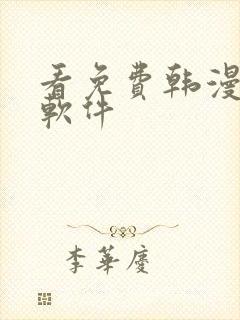 看免费韩漫
軟件
李華慶